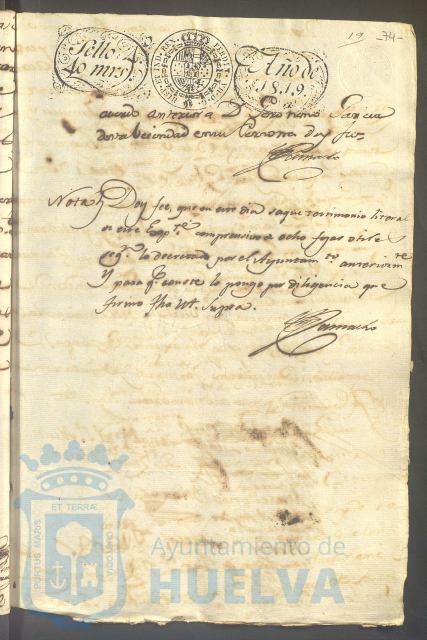 Sello 4º
40 mrs.
Año de
1819.
74
auerdo anterior a D. Geronimo Garcia
de esta Vecindad en su Persona doy fee
Camacho
Nota Doy fee, que en este dia saque testimonio literal
de este Exp.te comprensivo de ocho fojas utiles
seg.n lo decretado por el Ayuntam.to anteriorm.te
Y para q.e conste lo pongo por diligencia que
firmo fha ut supra.
Camacho
PORTUS MARIS
ET TERRÆ
CUSTODIA
Ayuntamiento de
HUELVA